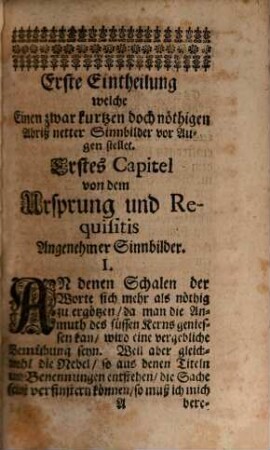 Erste Eintheilung
welche
Einen zwar kurtzen doch nöthigen
Abriß netter Sinnbilder vor Au-
gen stellet.
Erstes Capitel
von dem
Ursprung und Re-
quisitis
Angenehmer Sinnbilder.
I.
AN denen Schalen der
Worte sich mehr als nöthig
zu ergötzen/ da man die An-
muth des süssen Kerns genies-
sen kan/ wird eine vergebliche
Bemühung seyn. Weil aber gleich-
wohl die Nebel/ so aus denen Titeln
und Benennungen entstehen/ die Sache
verfinstern können/ so muß ich mich
A dere-